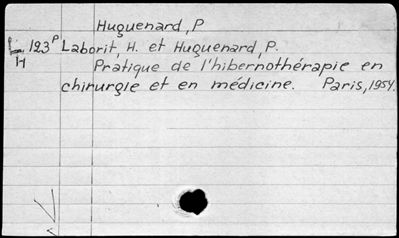 Huguenard, P
L 123ᵖ Laborit, H. et Huguenard, P.
H Pratique de l'hibernothérapie en
chirurgie et en médicine. Paris, 1954.